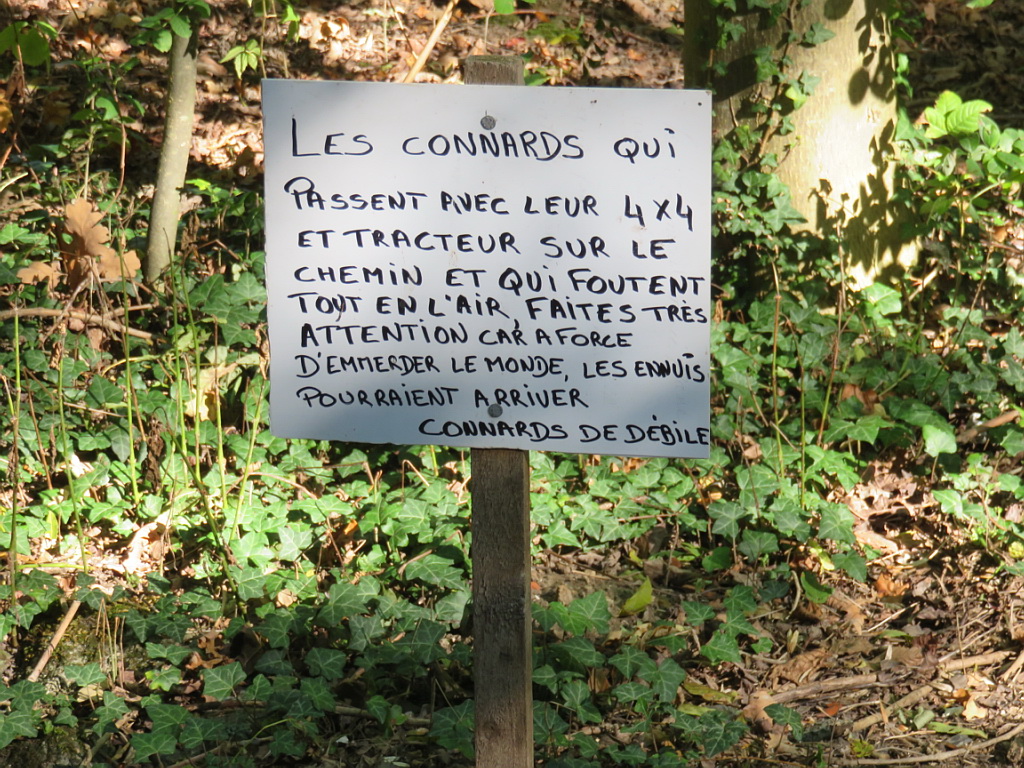 LES CONNARDS QUI
PASSENT AVEC LEUR 4X4
ET TRACTEUR SUR LE
CHEMIN ET QUI FOUTENT
TOUT EN L'AIR, FAITES TRÈS
ATTENTION CAR A FORCE
D'EMMERDER LE MONDE, LES ENNUIS
POURRAIENT ARRIVER
CONNARDS DE DÉBILE